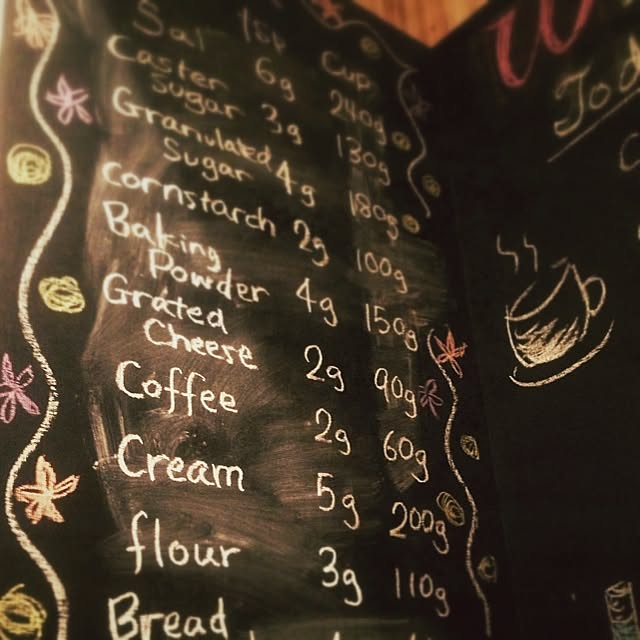 Sal 1st Cup
6g 240g
Caster
Sugar 3g 130g
Granulated
Sugar 4g 180g
Cornstarch 2g 100g
Baking
Powder 4g 150g
Grated
Cheese 2g 90g
Coffee 2g 60g
Cream 5g 200g
flour 3g 110g
Bread
Tod